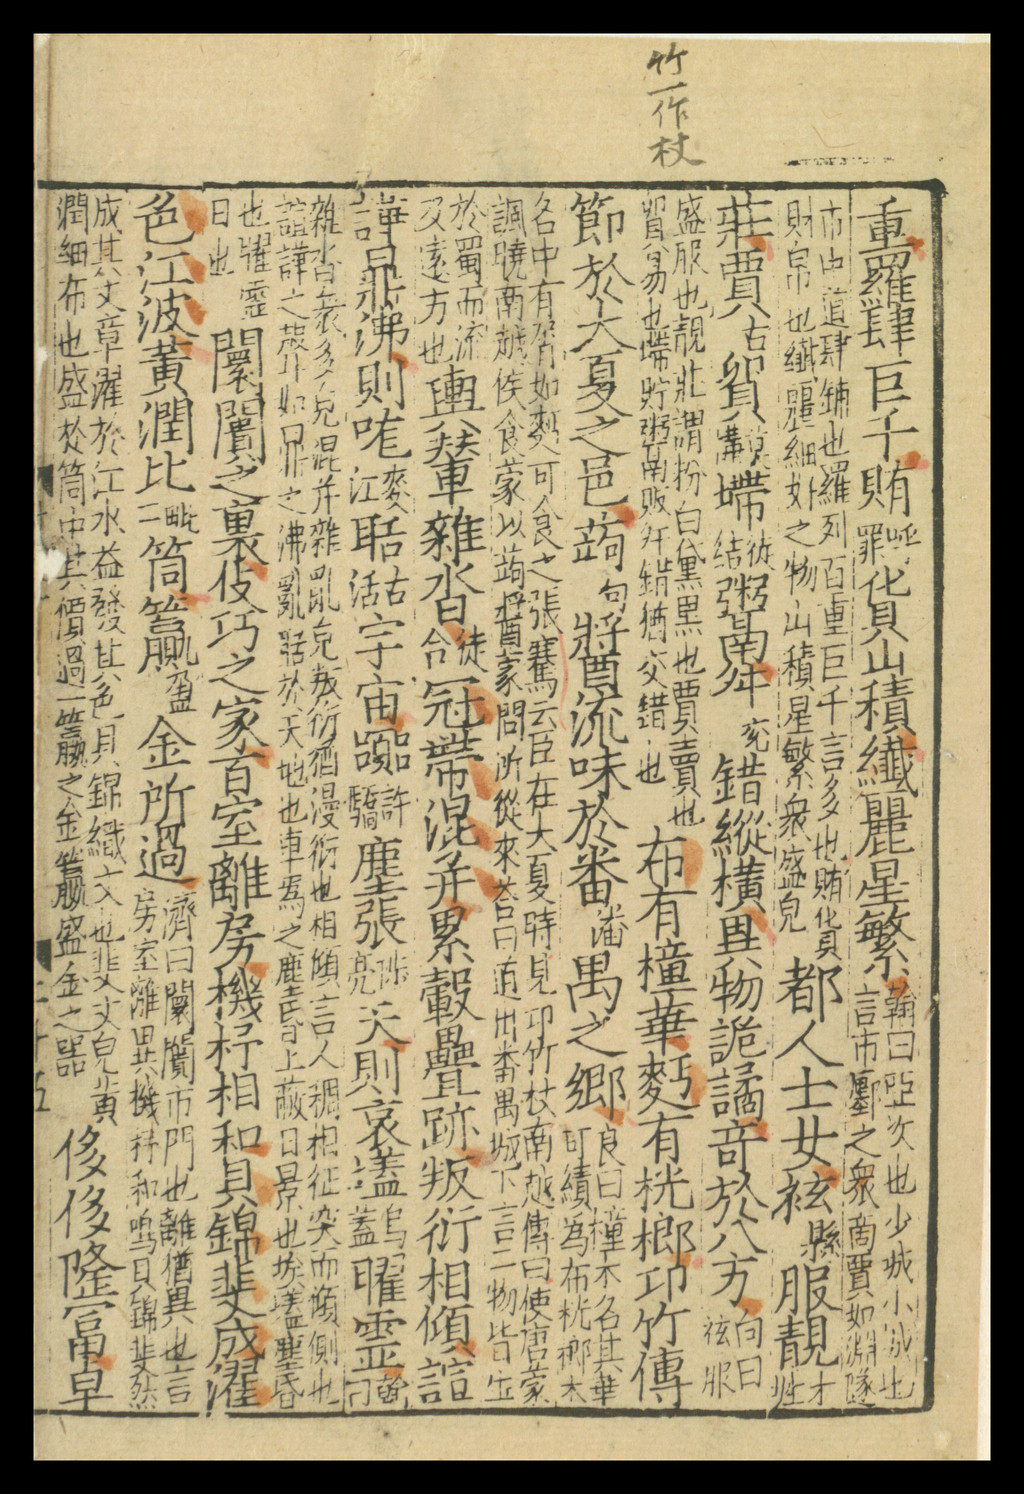 竹一作杖
重羅肆巨千賄呼罪化貝山積纖麗星繁翰曰亞次也少城小城也言市鄽之衆商賈如淵隧
市中道肆鋪也羅列百重巨千言多也賄貨財帛也纖麗細好之物山積星繁衆盛皃都人士女袨縣服靚才性
莊賈古貿莫搆墆徒結鬻舛兖錯縱橫異物詭譎奇於八方向曰袨服
盛服也靚莊謂粉白黛黒也賈賣也貿易也墆貯鬻賣販舛錯猶交錯也布有橦華麪有桄榔卭竹傳
節於大夏之邑蒟句將酉流味於番潘禺之鄉良曰橦木名其華可績為布桄榔木
名中有屑如麪可食之張騫云臣在大夏時見卭竹杖南越傳曰使唐蒙諷曉南越侯食蒙以蒟醬蒙問所從來荅曰道出番禺城下言二物皆生
於蜀而流及遠方也輿輦車雜沓徒合冠帶混并累轂疊跡叛衍相傾諠
譁鼎沸則咙麥江聒古活宇宙嚻許驕塵張陟亮天則哀壒烏蓋曜靈翰曰
雜沓衆多皃混并雜亂皃叛衍猶漫衍也相傾言人稠相征突而傾側也諠譁之聲如鼎之沸亂聒於天地也車馬之塵昏上蔽日景也埃壒塵昏
也曜靈日也闤闠之裏伎巧之家百室離房機杼相和貝錦斐成濯
色江波黃潤比毗二筒籯盈金所過濟曰闤闠市門也離猶異也言房室離異機杼和鳴貝錦斐然
成其文章濯於江水益發其色貝錦織文也斐文皃黃潤細布也盛於筒中其價過一籯之金籯盛金之器侈侈隆富卓